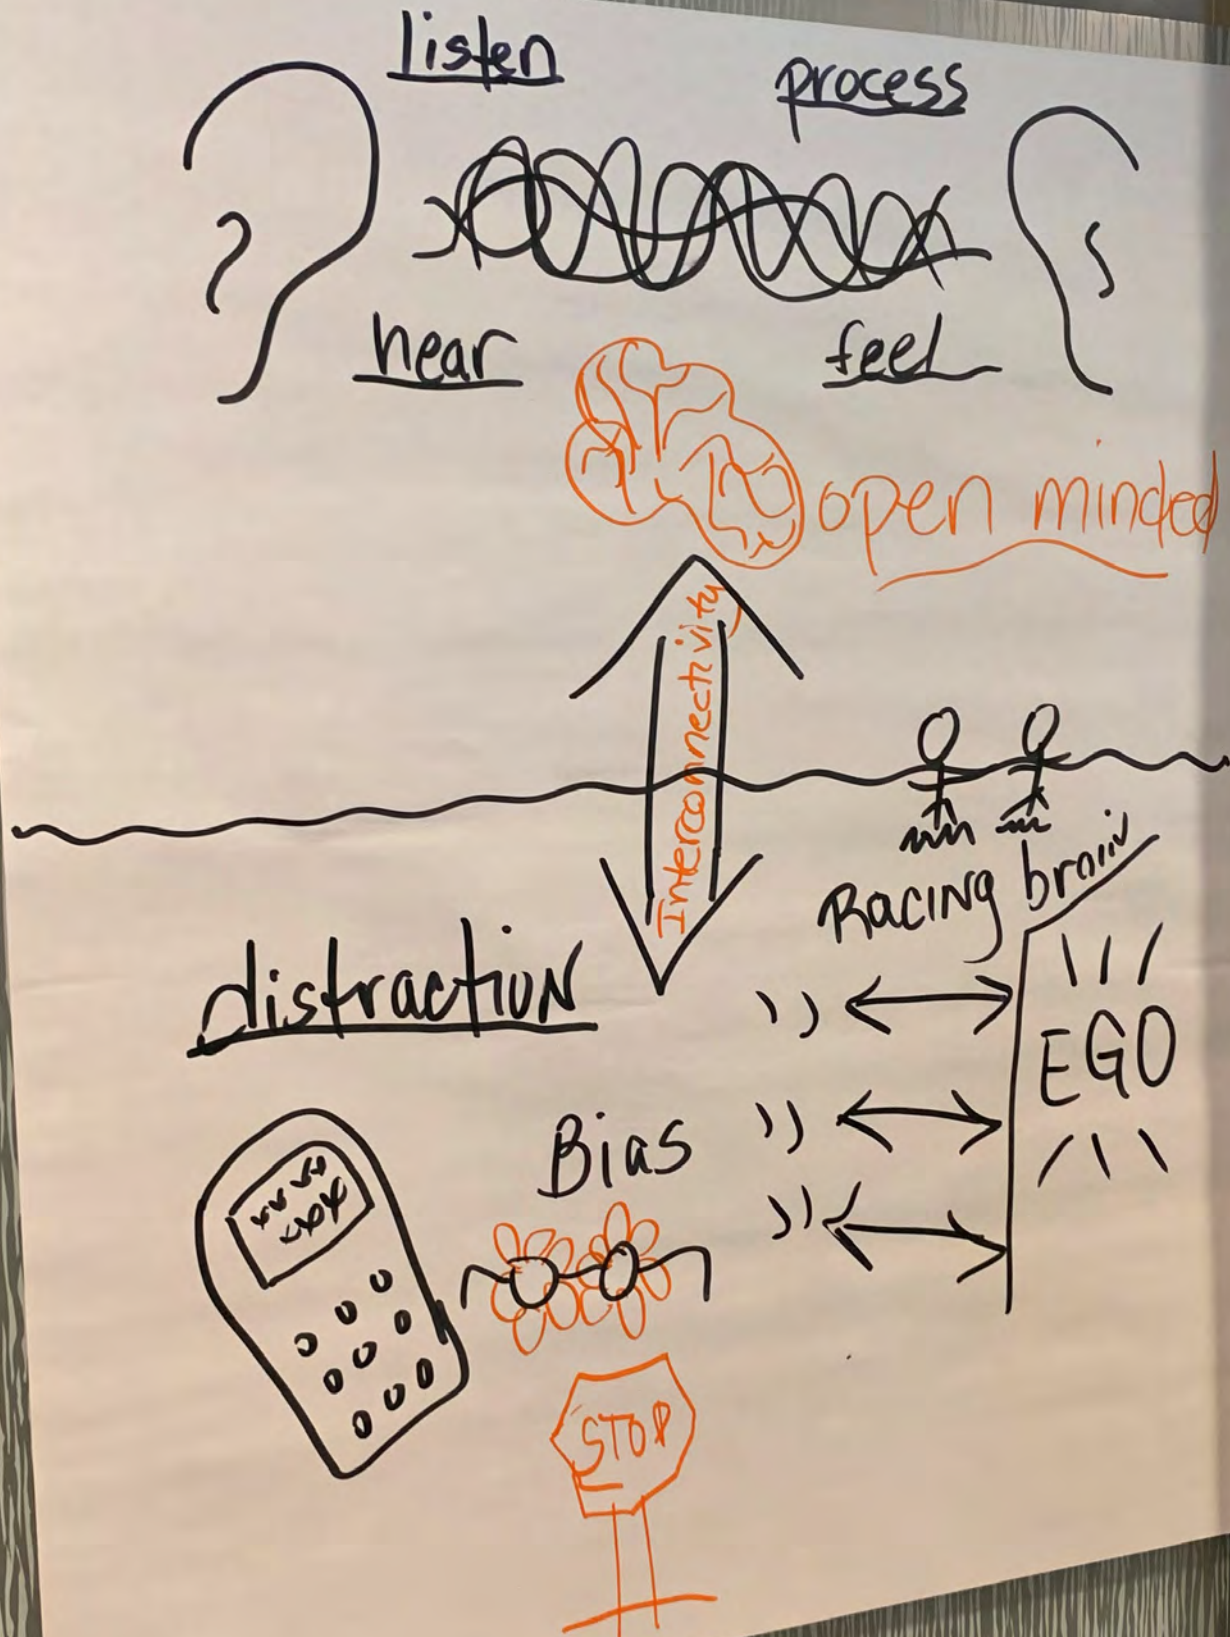 listen
process
hear
feel
open minded
Interconnectivity
Racing brain
distraction
EGO
Bias
STOP